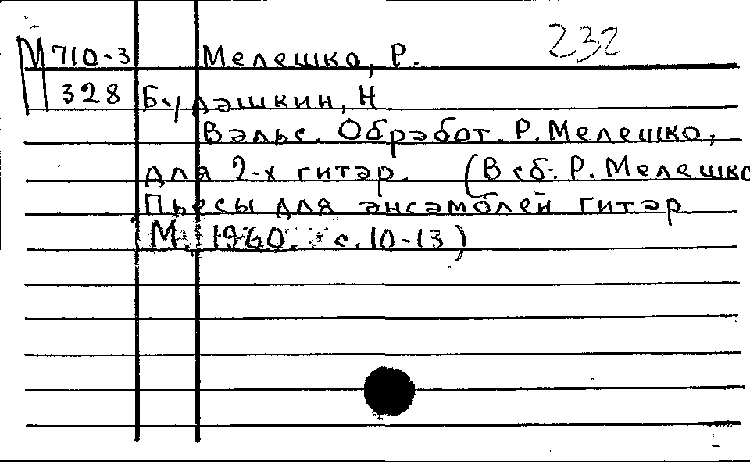 232
М 710-3 Мелешко, Р.
328 Булашкин, Н
Вальс. Обработ. Р. Мелешко,
для 2-х гитар. (В сб: Р. Мелешко
Пьесы для ансамблей гитар
М. 1960. с. 10-13)